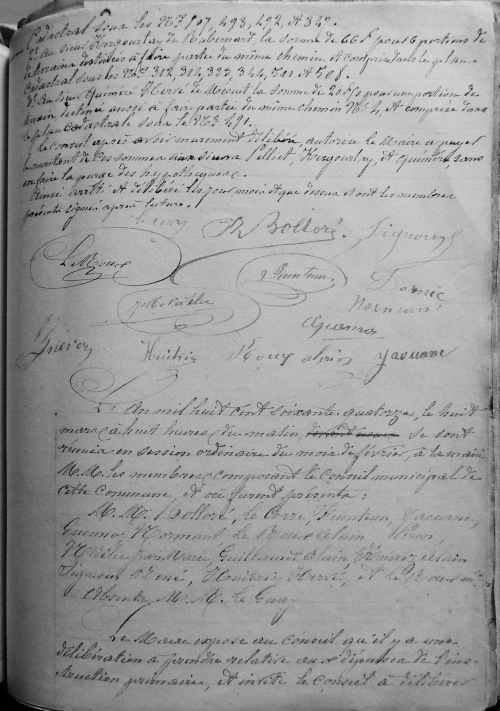 Cadastral sous les Nos 107, 293, 292, et 327.
2° au sieur Kergourlay de Robinard la somme de 66f pour 6 portions de
terrains destinées à faire partie du même chemin et comprises dans le plan
cadastral sous les Nos 312, 314, 323, 344, 501 et 508.
3° Au sieur Quiniré Hervé de la somme de 20f50 pour une portion de
terrain destinée aussi à faire partie du même chemin No 4, et comprise dans
le plan cadastral sous le No 291.
Le conseil après avoir mûrement délibéré, autorise le Maire à payer
le montant de ces sommes aux sieurs Pelliet, Kergourlay, et Quiniré sans
en faire la purge des hypothèques.
Ainsi arrêté et délibéré les jour, mois et que dessus et ont les membres
présents signé après lecture.
le corre R Bolloré. Signour
Le Roux
Feunteun
Normant
Guenno
Huitric Rouz alain Yaouanc
L'An mil huit cent soixante quatorze, le huit
mars à huit heures du matin se sont
réunis en session ordinaire du mois de février, à la mairie
M.M. les membres composant le Conseil municipal de
cette Commune, et où furent présents :
M. M. Bolloré, Le Corre, Feunteun, Yaouanc,
Guenno, Normant, Le Roux alain,
Jean Marie, Guillaume Alain, alain
Signour René, Huitric Hervé, et Le Roux
Absents M. M. Le Gay
Le Maire expose au conseil qu'il y a une
délibération à prendre relative aux dépenses de l'ins-
truction primaire, et invite le conseil à délibérer